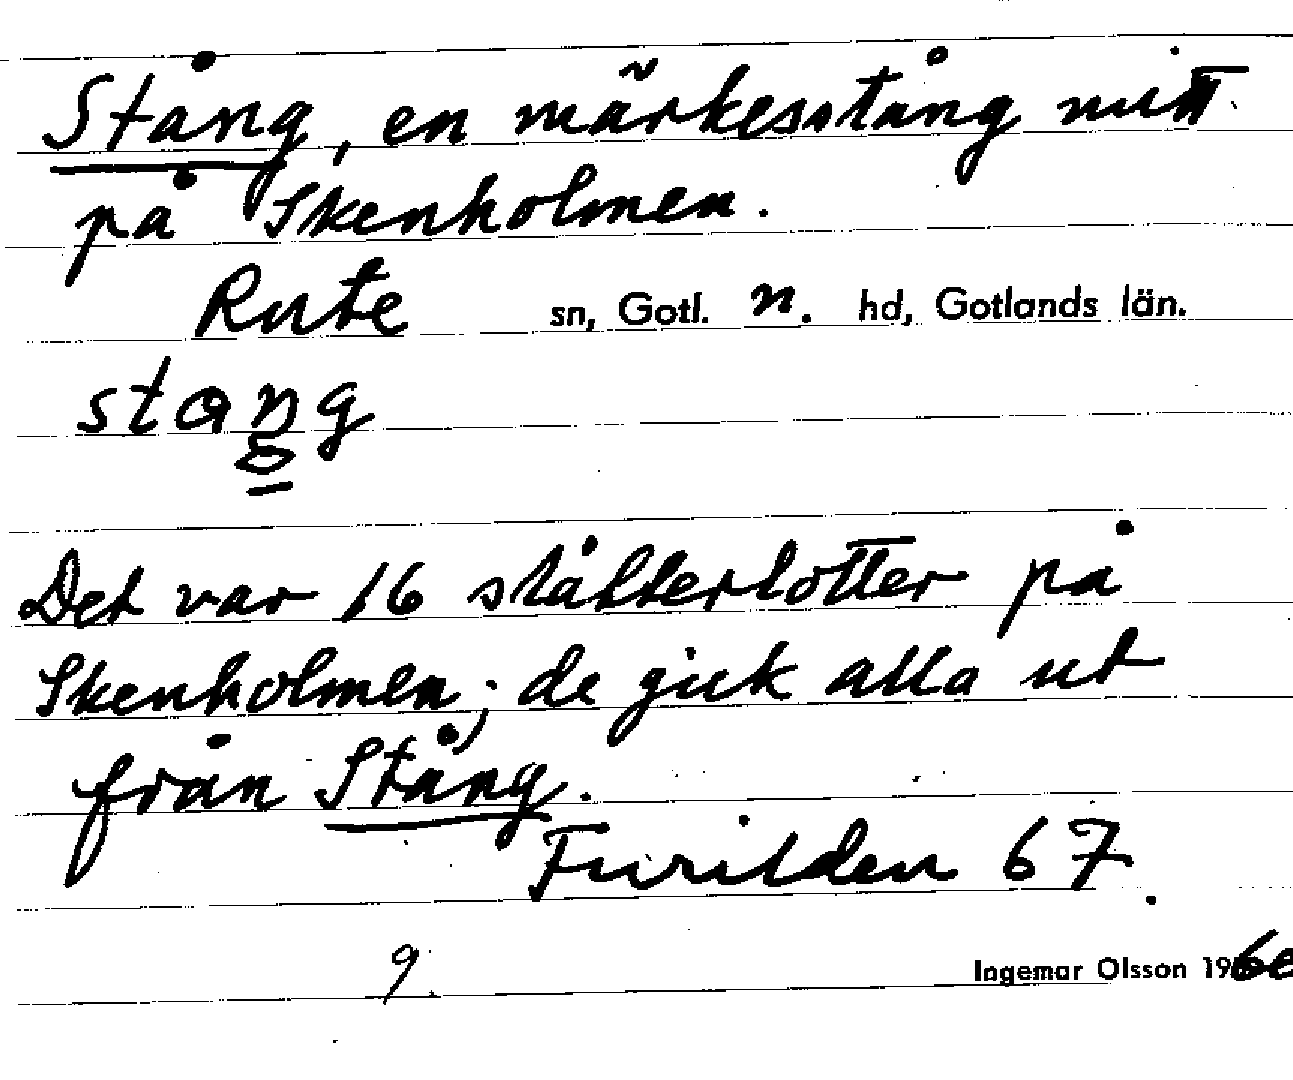 Stång, en märkesstång mitt
på Skenholmen.
Rute sn, Gotl. n. hd, Gotlands län.
stang
Det var 16 slåtterlotter på
Skenholmen; de gick alla ut
från Stång.
Furilden 67.
9.
Ingemar Olsson 19